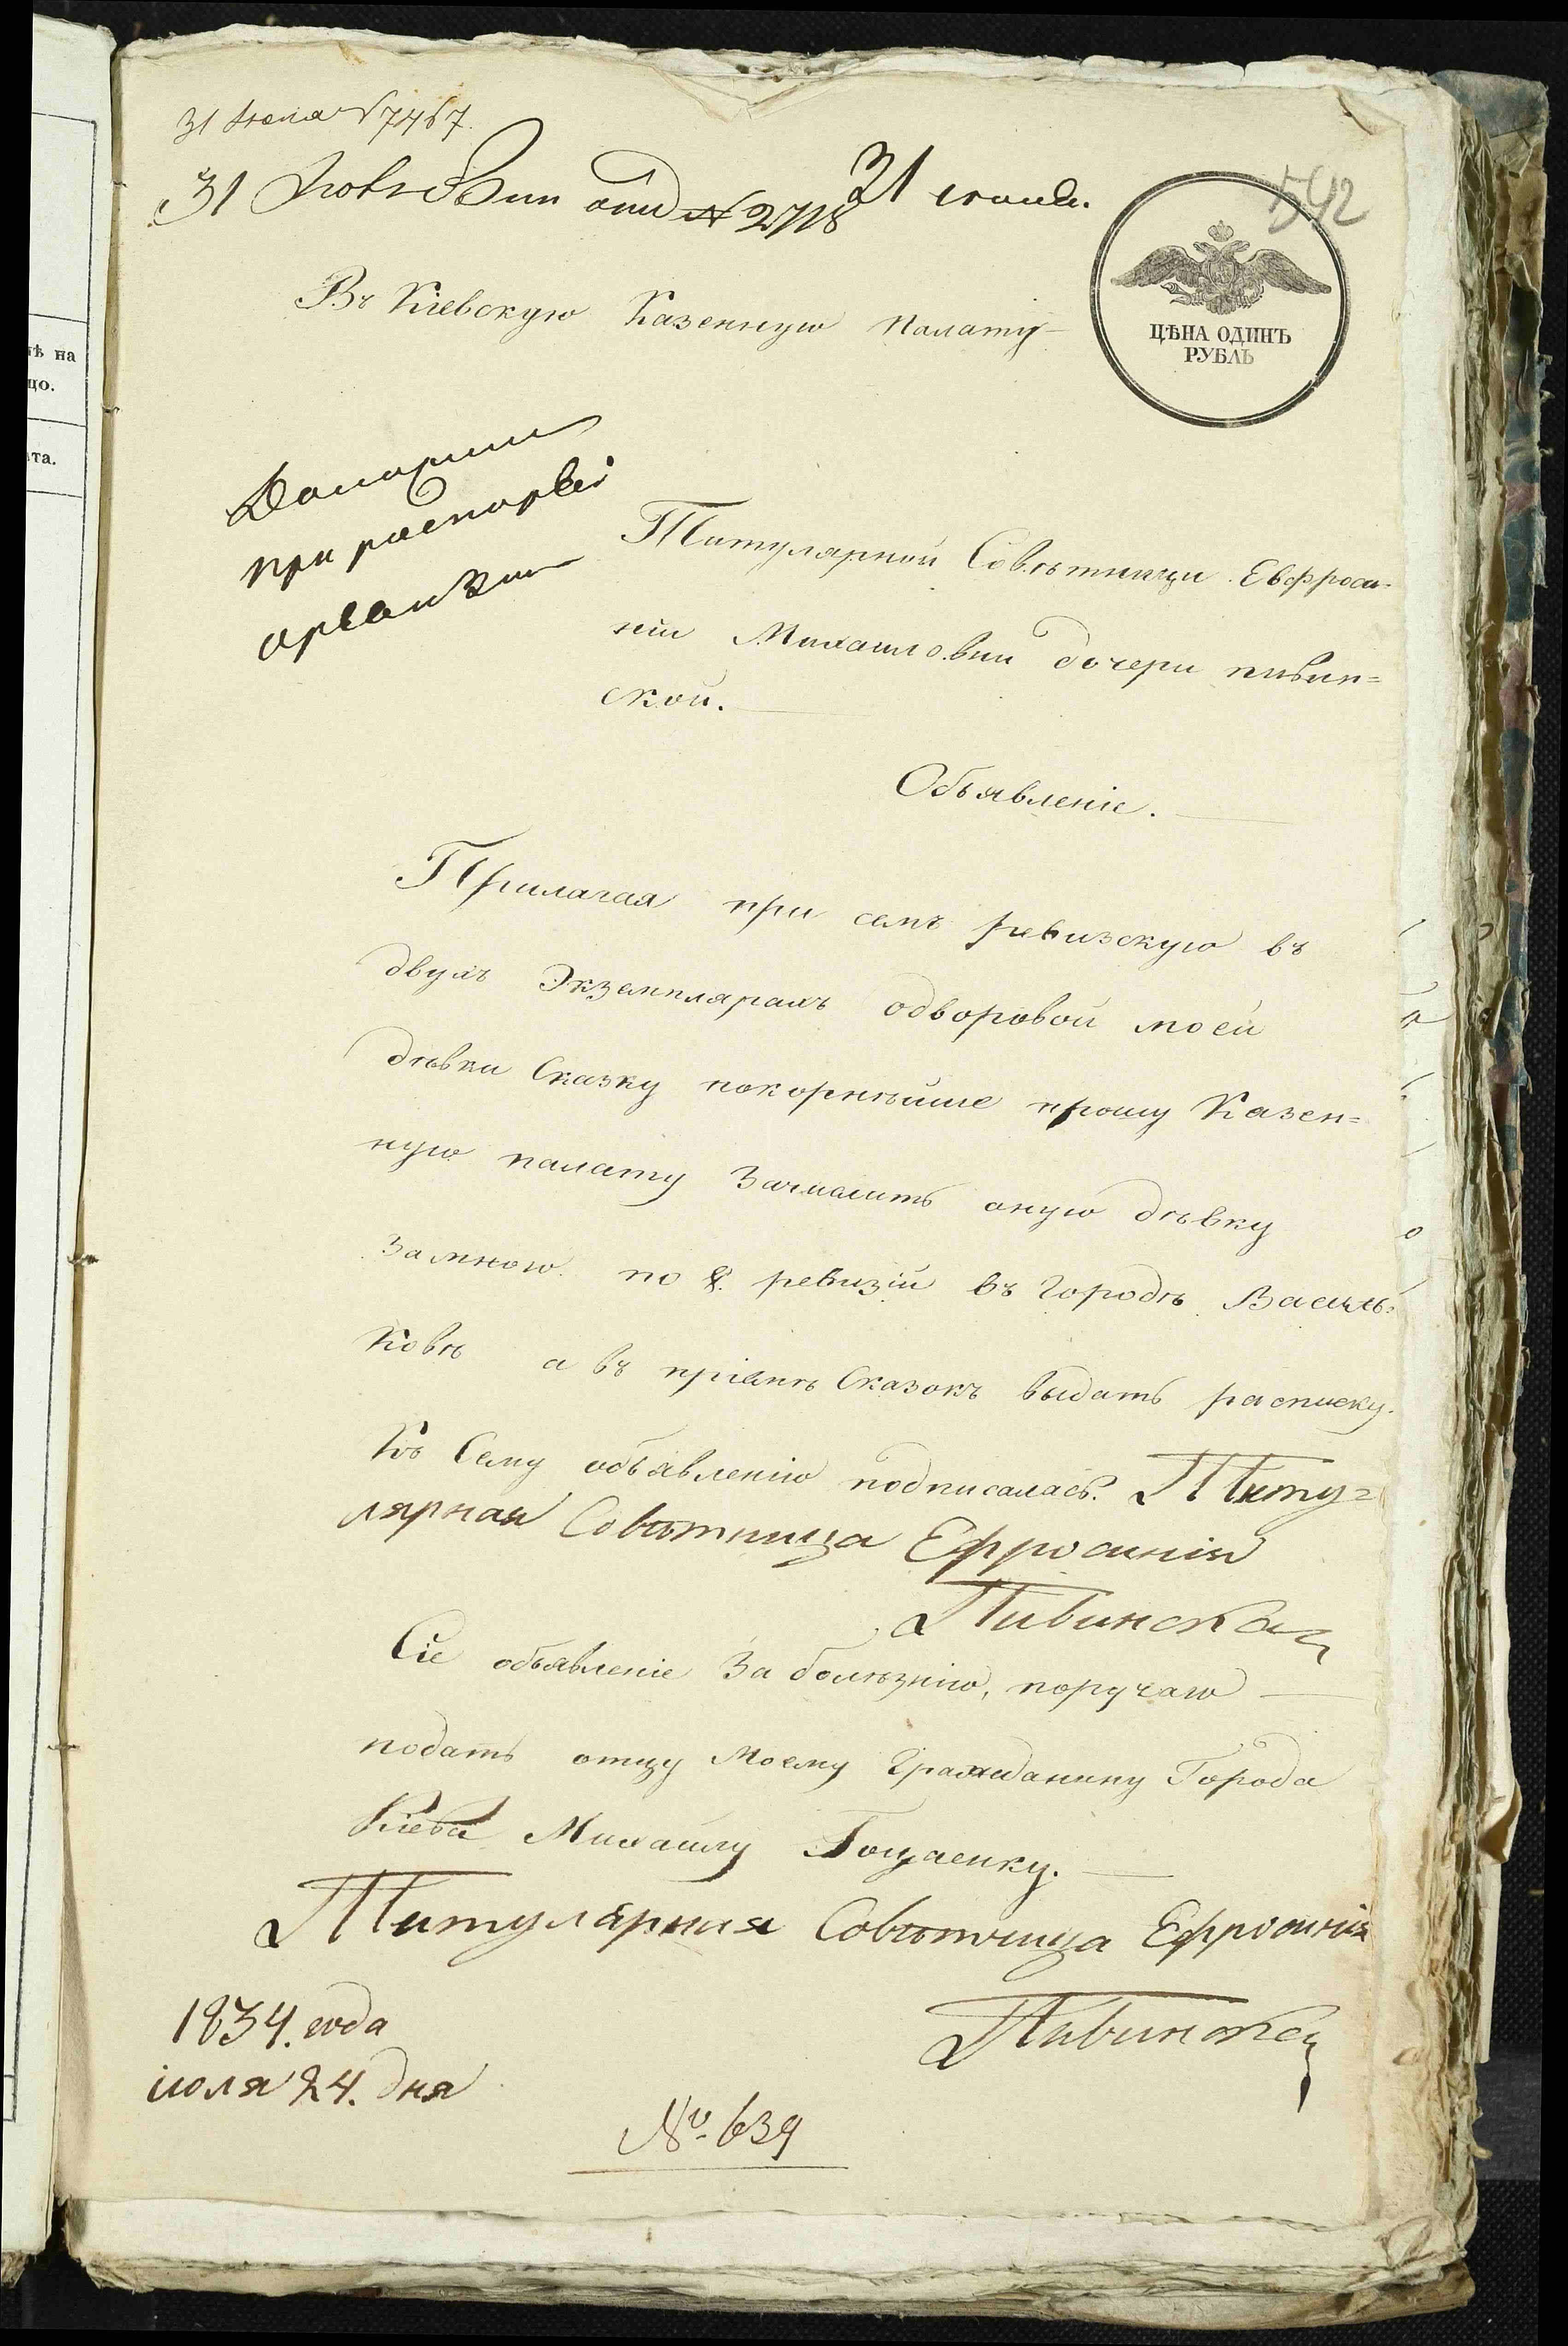 31 Июля № 7467.
31 Июля отд № 2718
31 июля.
542
ЦѢНА ОДИНЪ
РУБЛЬ
Въ Кіевскую Казенную Палату
Титулярной Совѣтницы Евфроси=
ніи Михаиловны дочери пивин=
ской.
Объявленіе.
Прилагая при семъ ревизскую въ
двухъ Экземплярахъ одворовой моей
дѣвки Сказку покорнѣйше прошу Казен=
ную палату Зачислить оную дѣвку
За мною по 8. ревизіи въ Городѣ Василь=
ковѣ а въ пріемѣ Сказокъ выдать расписку.
Къ Сему объявленію подписалась. Титу=
лярная Совѣтница Ефросинія
Пивинская
Сіе объявленіе За болѣзнію, поручаю
подать отцу Моему Гражданину Города
Кіева Михаилу
Титулярная Совѣтница Ефросинія
Пивинская
1834. года
июля 24. дня
№ 639
ѣ на
цо.
та.